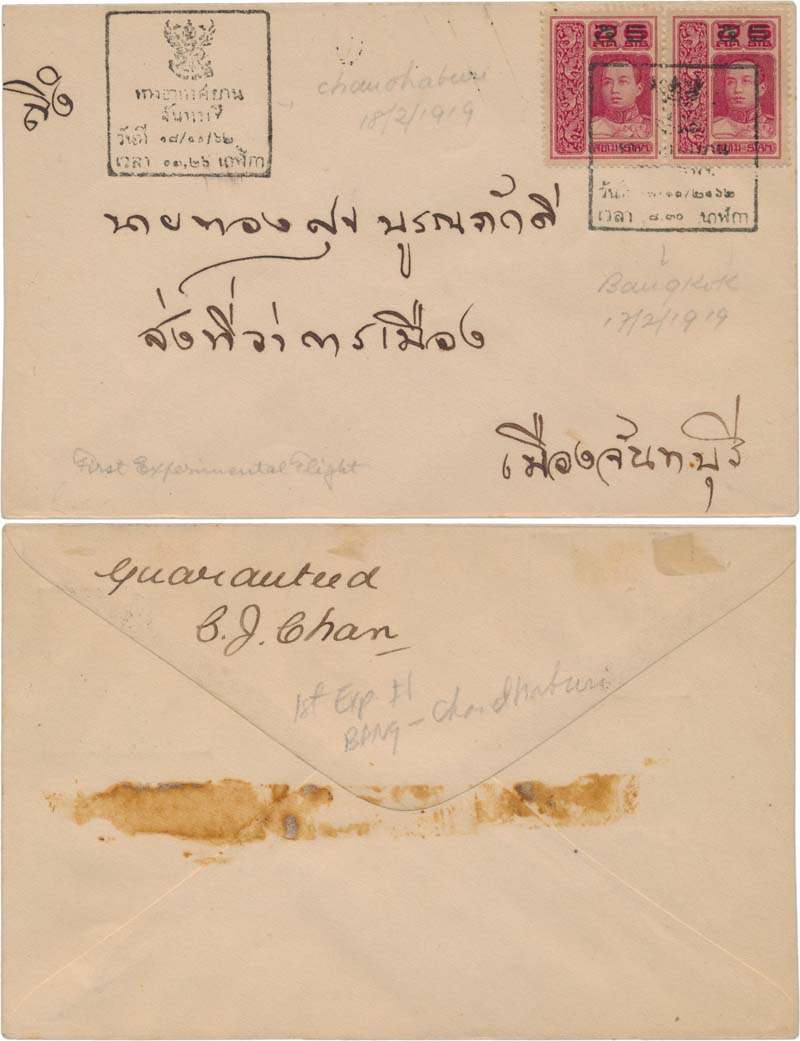 ถึง
ทางอากาศยาน
จันทบุรี
วันที่ ๑๘/๑๑/๖๒
เวลา ๑๑,๒๖ นาฬิกา
chandhaburi
18/2/1919
๕ 5
๕ 5
วันที่ ๑๑/๒๔๖๒
เวลา ๘.๓๐ นาฬิกา
Bangkok
17/2/1919
นายทองสุข บูรณศักดิ์
ส่งที่ว่าการเมือง
เมืองจันทบุรี
First Experimental Flight
Guaranteed
C. J. Chan
1st Exp. fl
BANG - Chandhaburi